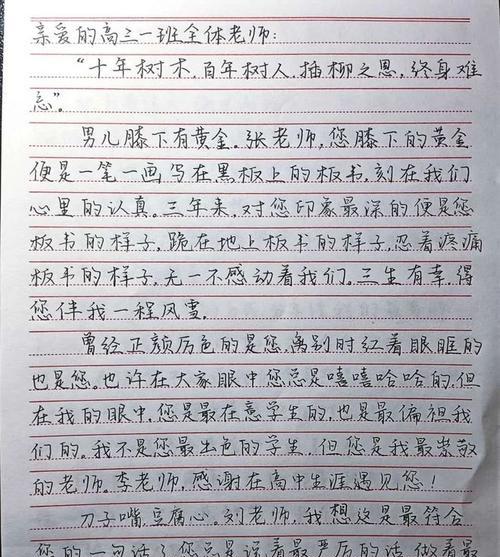 亲爱的高三一班全体老师:
“十年树木,百年树人,插柳之恩,终身难
忘”。
男儿膝下有黄金。张老师,您膝下的黄金
便是一笔一画写在黑板上的板书,刻在我们
心里的认真。三年来,对您印象最深的便是您
板书的样子,跪在地上板书的样子,忍着疼痛
板书的样子,无一不感动着我们。三生有幸,得
您伴我一程风雪。
曾经正颜厉色的是您,离别时红着眼眶的
也是您。也许在大家眼中您总是嘻嘻哈哈的,但
在我的眼中,您是最在意学生的,也是最偏袒我
们的。我不是您最出色的学生,但您是我最崇敬
的老师。李老师,感谢在高中生涯遇见您!
刀子嘴,豆腐心。刘老师,我想这是最符合
您的一句话了,您总是说着最严厉的话,做着最